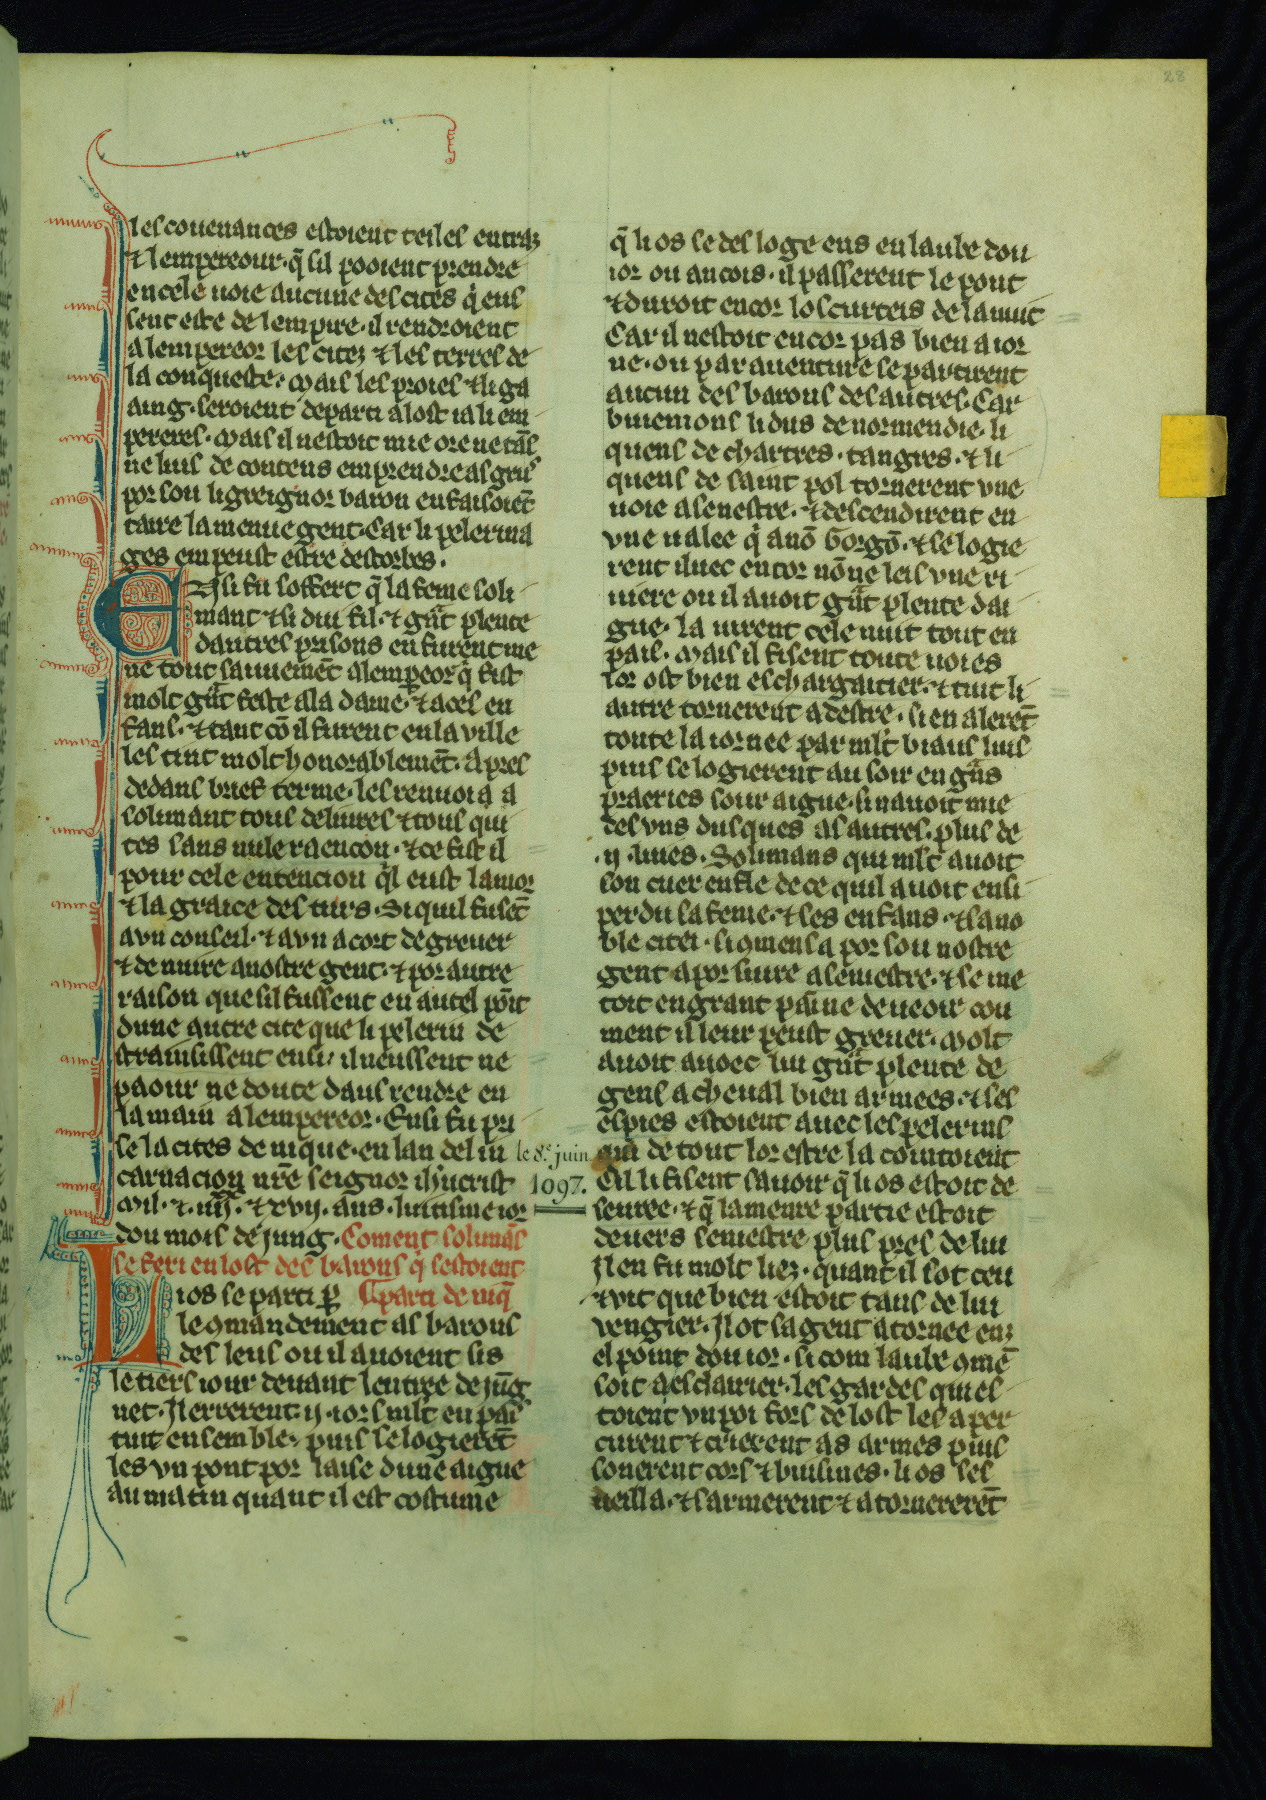 28
les couenances estoient teiles entraz
⁊ lempereour. q̄ sil pooient prendre
en cele uoie aucune des cites q̇ eus
sent este de lempire. il rendroient
a lempereor les citez ⁊ les terres de
la conqueste. mais les proies ⁊ li ga
aing. seroient departi a lost ia li em
pereres. mais il nestoit mie ore ne tās
ne luis de contens emprendre as greus
por son li greignor baron en faisoiēt
taire la menue gent. Car li pelerina
ges em peust estre destorbes.
Ensi fu soffert q̄ la feme soli
mant ⁊ si dui fil. ⁊ gāt plente
dautres prisons en furent me
ne tout sauuemēt a lempeor q̇ fist
molt gāt feste a la dame. ⁊ a ces en
fans. ⁊ tant cō il furent en la ville
les tint molt honorablemēt. Apres
dedans brief terme. les renuoia a
solimant tous deliures ⁊ tous qui
tes sans nule raencon. ⁊ ce fist il
pour cele entencion q̇l eust lamor
⁊ la graice des turs. Si quil fusēt
a vn conseil. ⁊ a vn acort de greuer
⁊ de nuire a nostre gent. ⁊ por autre
raison que sil fussent en autel poīt
dune autre cite que li pelerin de
strainsissent ensi. il neussent ne
paour ne doute dans rendre en
la main a lempereor. Ensi fu pri
se la cites de nique. en lan de lin
carnacion nr̄e seignor ih̄ucrist
mil. ⁊. iiij. ⁊ xvij. ans. luitisme ior
dou mois de jung. Coment solimās
se feri en lost des barons q̇ sestoient
parti de niq̄
Lios se parti ꝑ
le ꝯmandement as barons
des leus ou il auoient sis
le tiers iour deuant lentree de jūg
net. Il errerent. ij. iors mlt en pais
tuit ensemble. puis se logierēt
les vn pont por laise dune aigue
au matin quant il est costume
le 8.e juin
1097.
q̄ li os se des loge eus en laube dou
ior ou ancois. il passerent le pont
⁊ duroit encor loscurteis de la nuit
Car il nestoit encor pas bien a ior
ne. ou par auenture se partirent
aucun des barons des autres. Car
buiemons li dus de normendie. li
quens de chartres. tangres. ⁊ li
quens de saint pol tornerent vne
uoie a senestre. ⁊ descendirent en
vne ualee q̇ a nō Gorgō. ⁊ se logie
rent iluec encor nōne leis vne ri
uiere ou il auoit gāt plente dai
gue. la iurent cele nuit tout en
pais. mais il fisent toute uoies
lor ost bien eschargaitier. ⁊ tuit li
autre tornerent a destre. si en alerēt
toute la iornee par mlt biaus luis
puis se logierent au soir en gās
praeries sour aigue. si nauoit mie
des vns dusques as autres. plus de
.ij. liues. Solimans qui mlt auoit
son cuer enfle de ce quil auoit ensi
perdu sa feme. ⁊ ses enfans. ⁊ sa no
ble citei. si ꝯmensa por son nostre
gent a porsiure a senestre. ⁊ se me
toit en grant paine de ueoir con
ment il leur peust greuer. molt
auoit auoec lui gāt plente de
gens a cheual bien armees. ⁊ ses
espies estoient auec les pelerins
qui de tout lor estre la cointoient
Cil li fisent sauoir q̄ li os estoit de
seuree. ⁊ q̄ la menre partie estoit
deuers senestre plus pres de lui
Il en fu molt liez. quant il sot ceu
⁊ vit que bien estoit tans de lui
vengier. Il ot sa gent atornee enz
el point dou ior. si com laube ꝯmē
soit a esclairier. les gardes qui es
toient vn poi fors de lost les aper
curent ⁊ crierent as armes puis
sonerent cors ⁊ buisines. li os ses
ueilla. ⁊ sarmerent ⁊ atornererēt